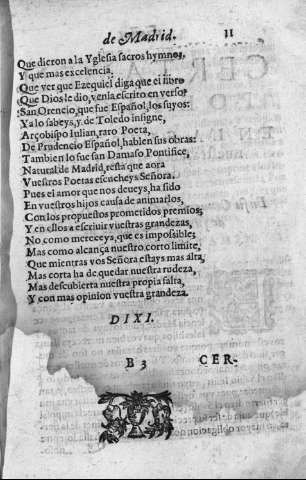 de Madrid. 11
Que dieron a la Yglesia sacros hymnos,
Y que mas excelencia,
Que ver que Ezequiel diga que el libro
Que Dios le dio, venia escrito en verso?
San Orencio, que fue Español, los suyos:
Ya lo sabeys, y de Toledo insigne,
Arçobispo Iulian, raro Poeta,
De Prudencio Español, hablen sus obras:
Tambien lo fue san Damaso Pontifice,
Natural de Madrid, resta que aora
Vuestros Poetas escucheys Señora.
Pues el amor que nos deueys, ha sido
En vuestros hijos causa de animarlos,
Con los propuestos prometidos premios;
Y en ellos a escriuir vuestras grandezas,
No como mereceys, que es impossible;
Mas como alcança nuestro corto limite,
Que mientras vos Señora estays mas alta,
Mas corta ha de quedar nuestra rudeza,
Mas descubierta nuestra propia falta,
Y con mas opinion vuestra grandeza.
DIXI.
B 3 CER-